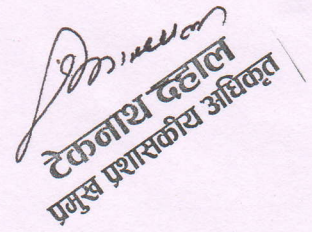 टेकनाथ दहाल
प्रमुख प्रशासकीय अधिकृत